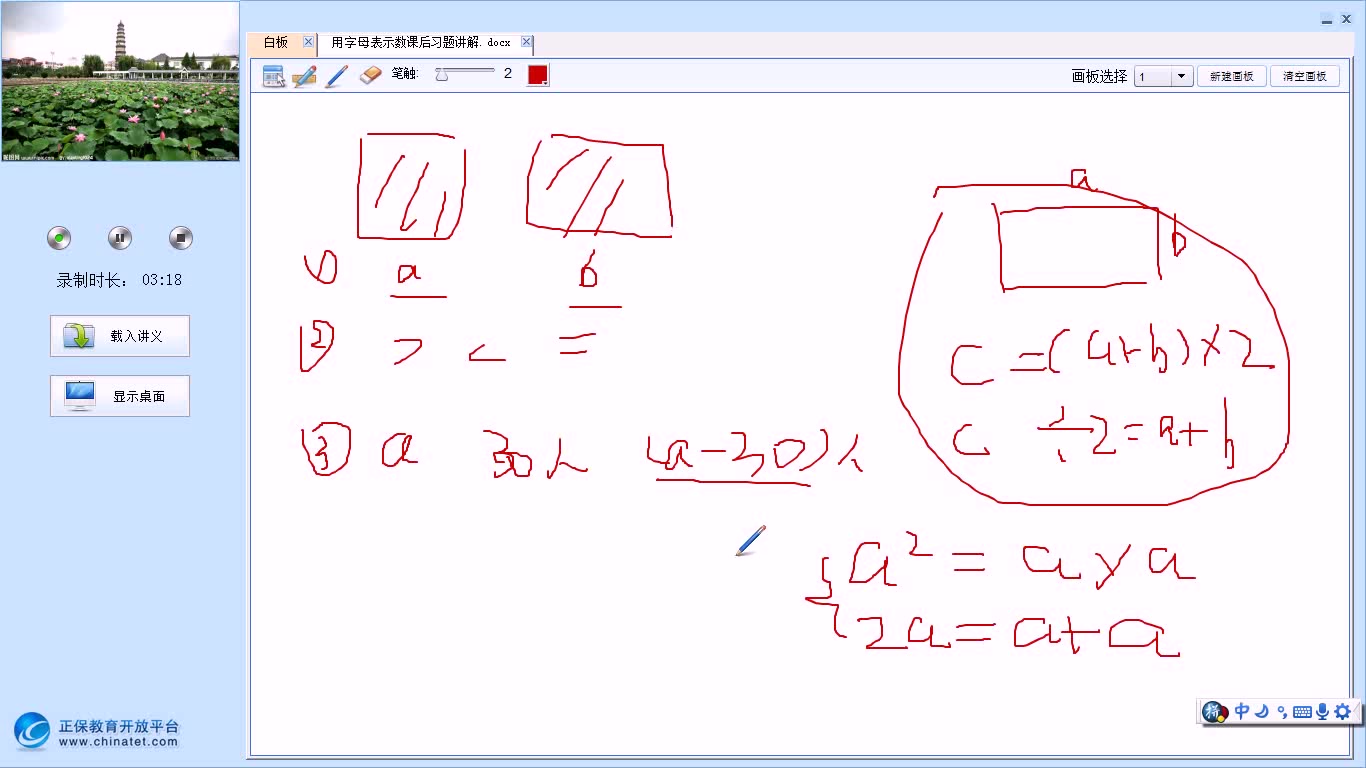 白板
用字母表示数课后习题讲解.docx
笔触: 2
画板选择 1 新建画板 清空画板
录制时长: 03:18
载入讲义
显示桌面
正保教育开放平台
www.chinatet.com
① a b
② > < =
③ a 30人 (a-30)人
a
b
C =(a+b)×2
C ÷2=a+b
a²=a×a
2a=a+a
中